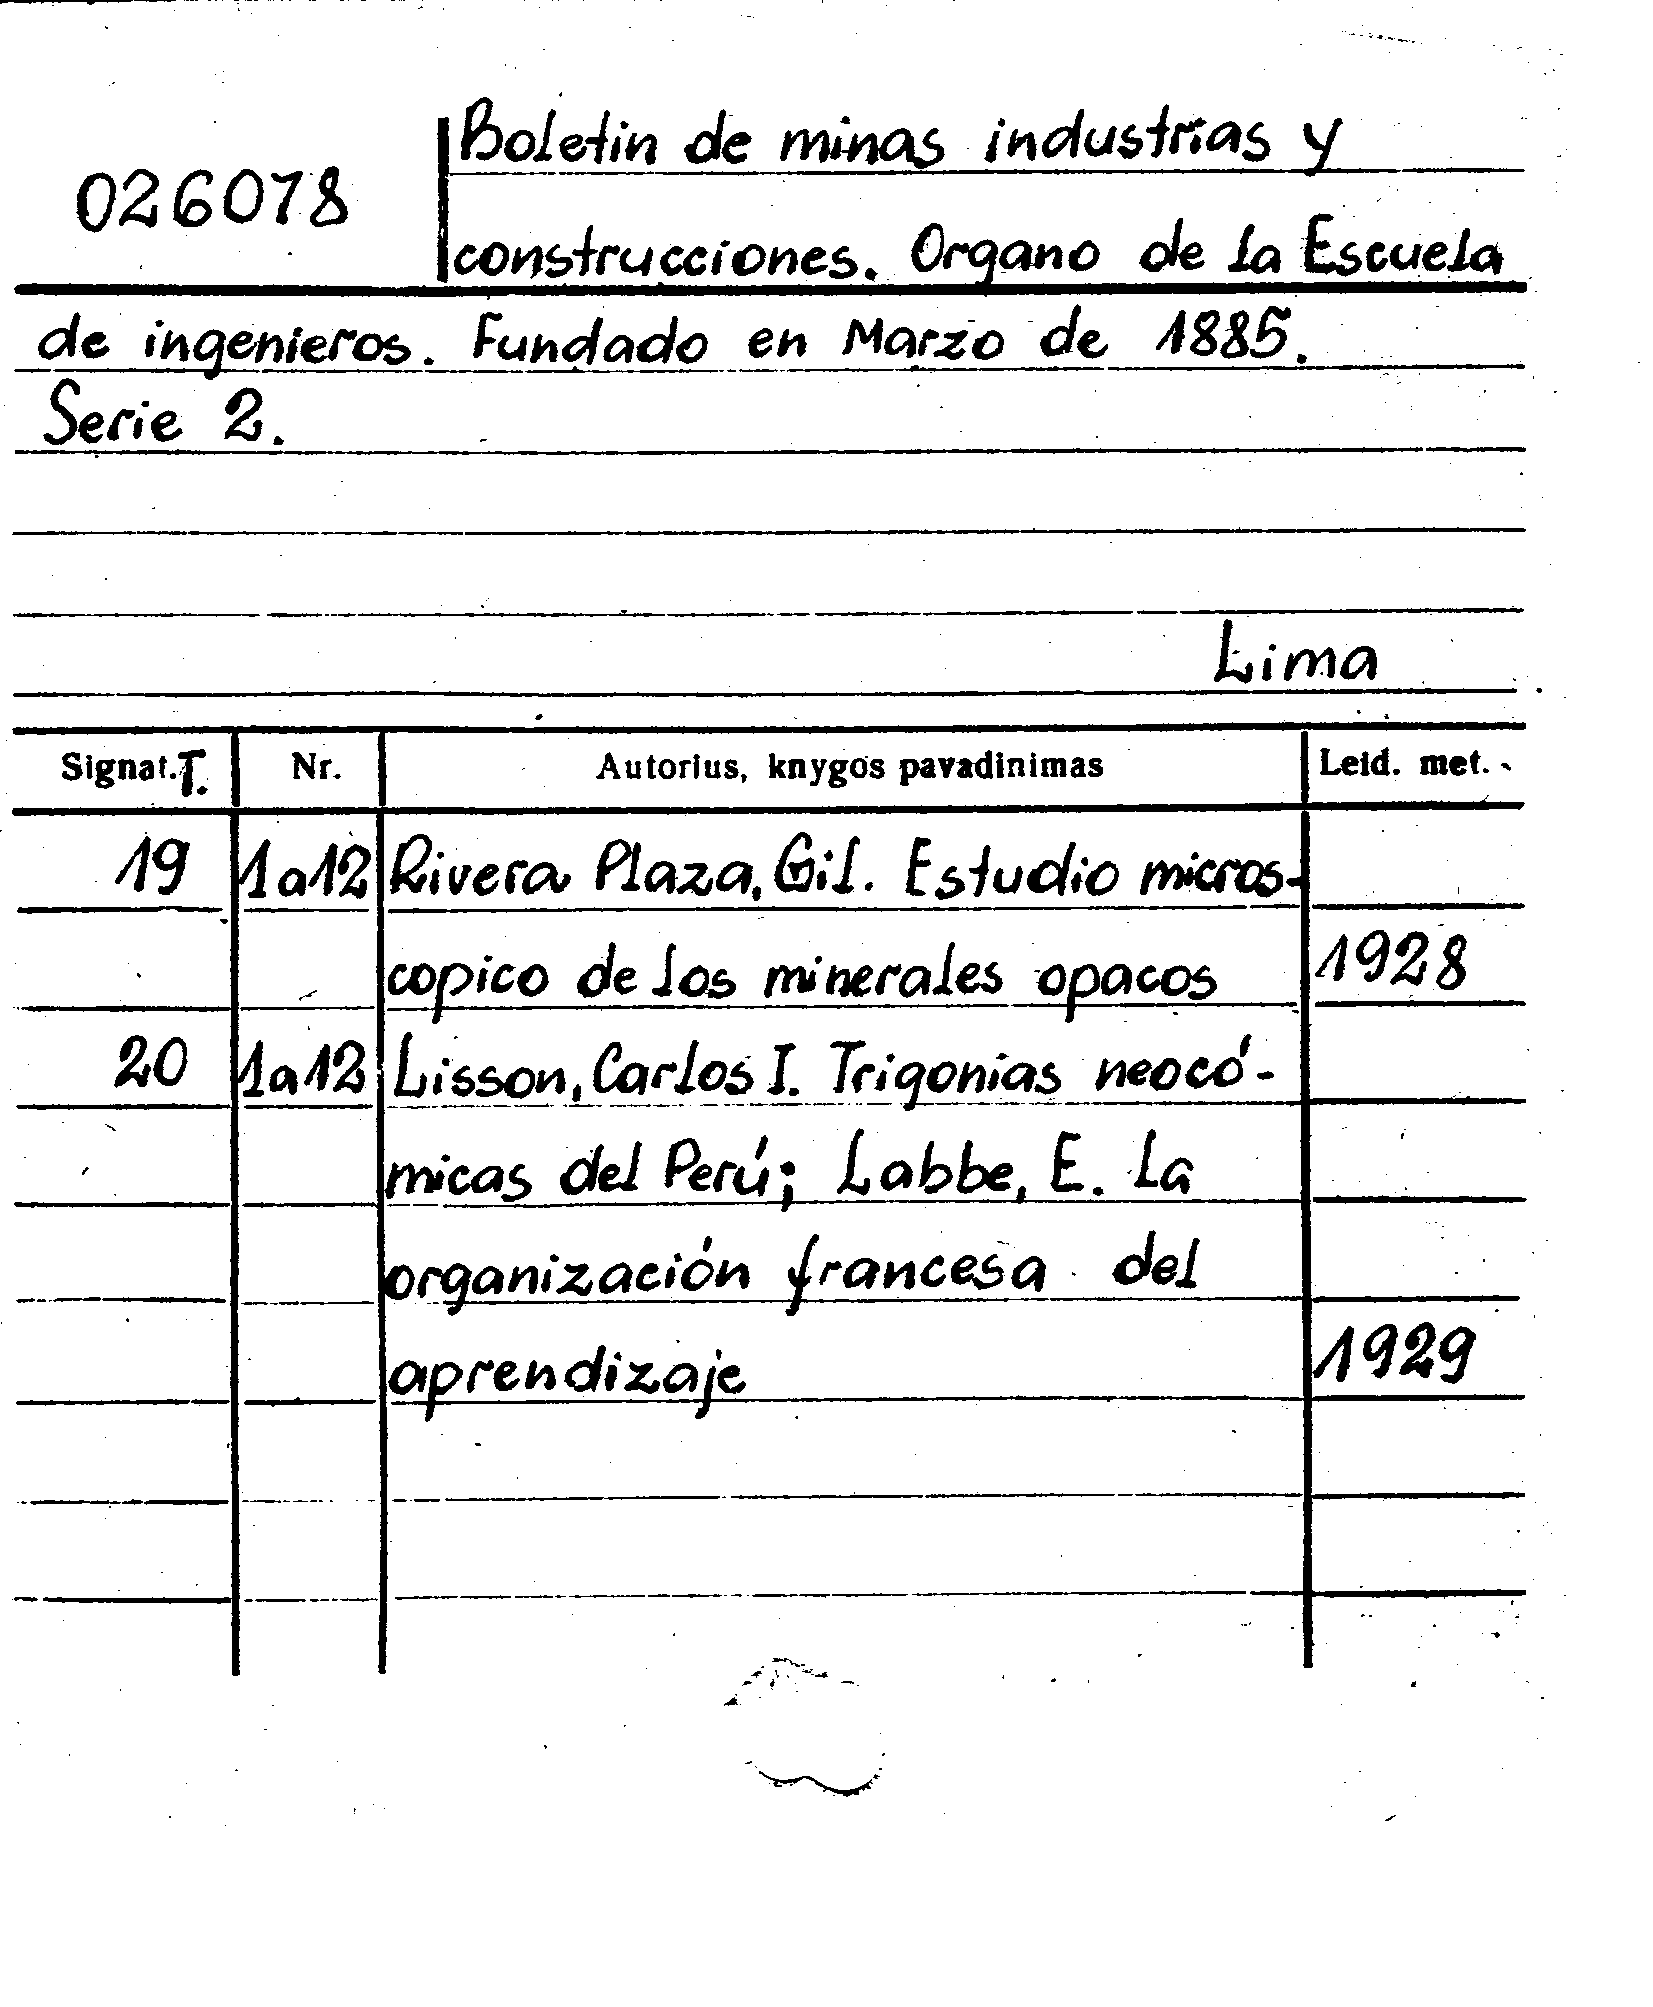 Boletin de minas industrías y
026078
construcciones. Organo de la Escuela
de ingenieros. Fundado en Marzo de 1885.
Serie 2.
Lima
Signat. T. Nr. Autorius, knygos pavadinimas Leid. met.
19 1a12 Rivera Plaza, Gil. Estudio micros-
copico de los minerales opacos 1928
20 1a12 Lisson, Carlos I. Trigonias neocó-
micas del Perú; Labbe, E. La
organización francesa del
aprendizaje 1929